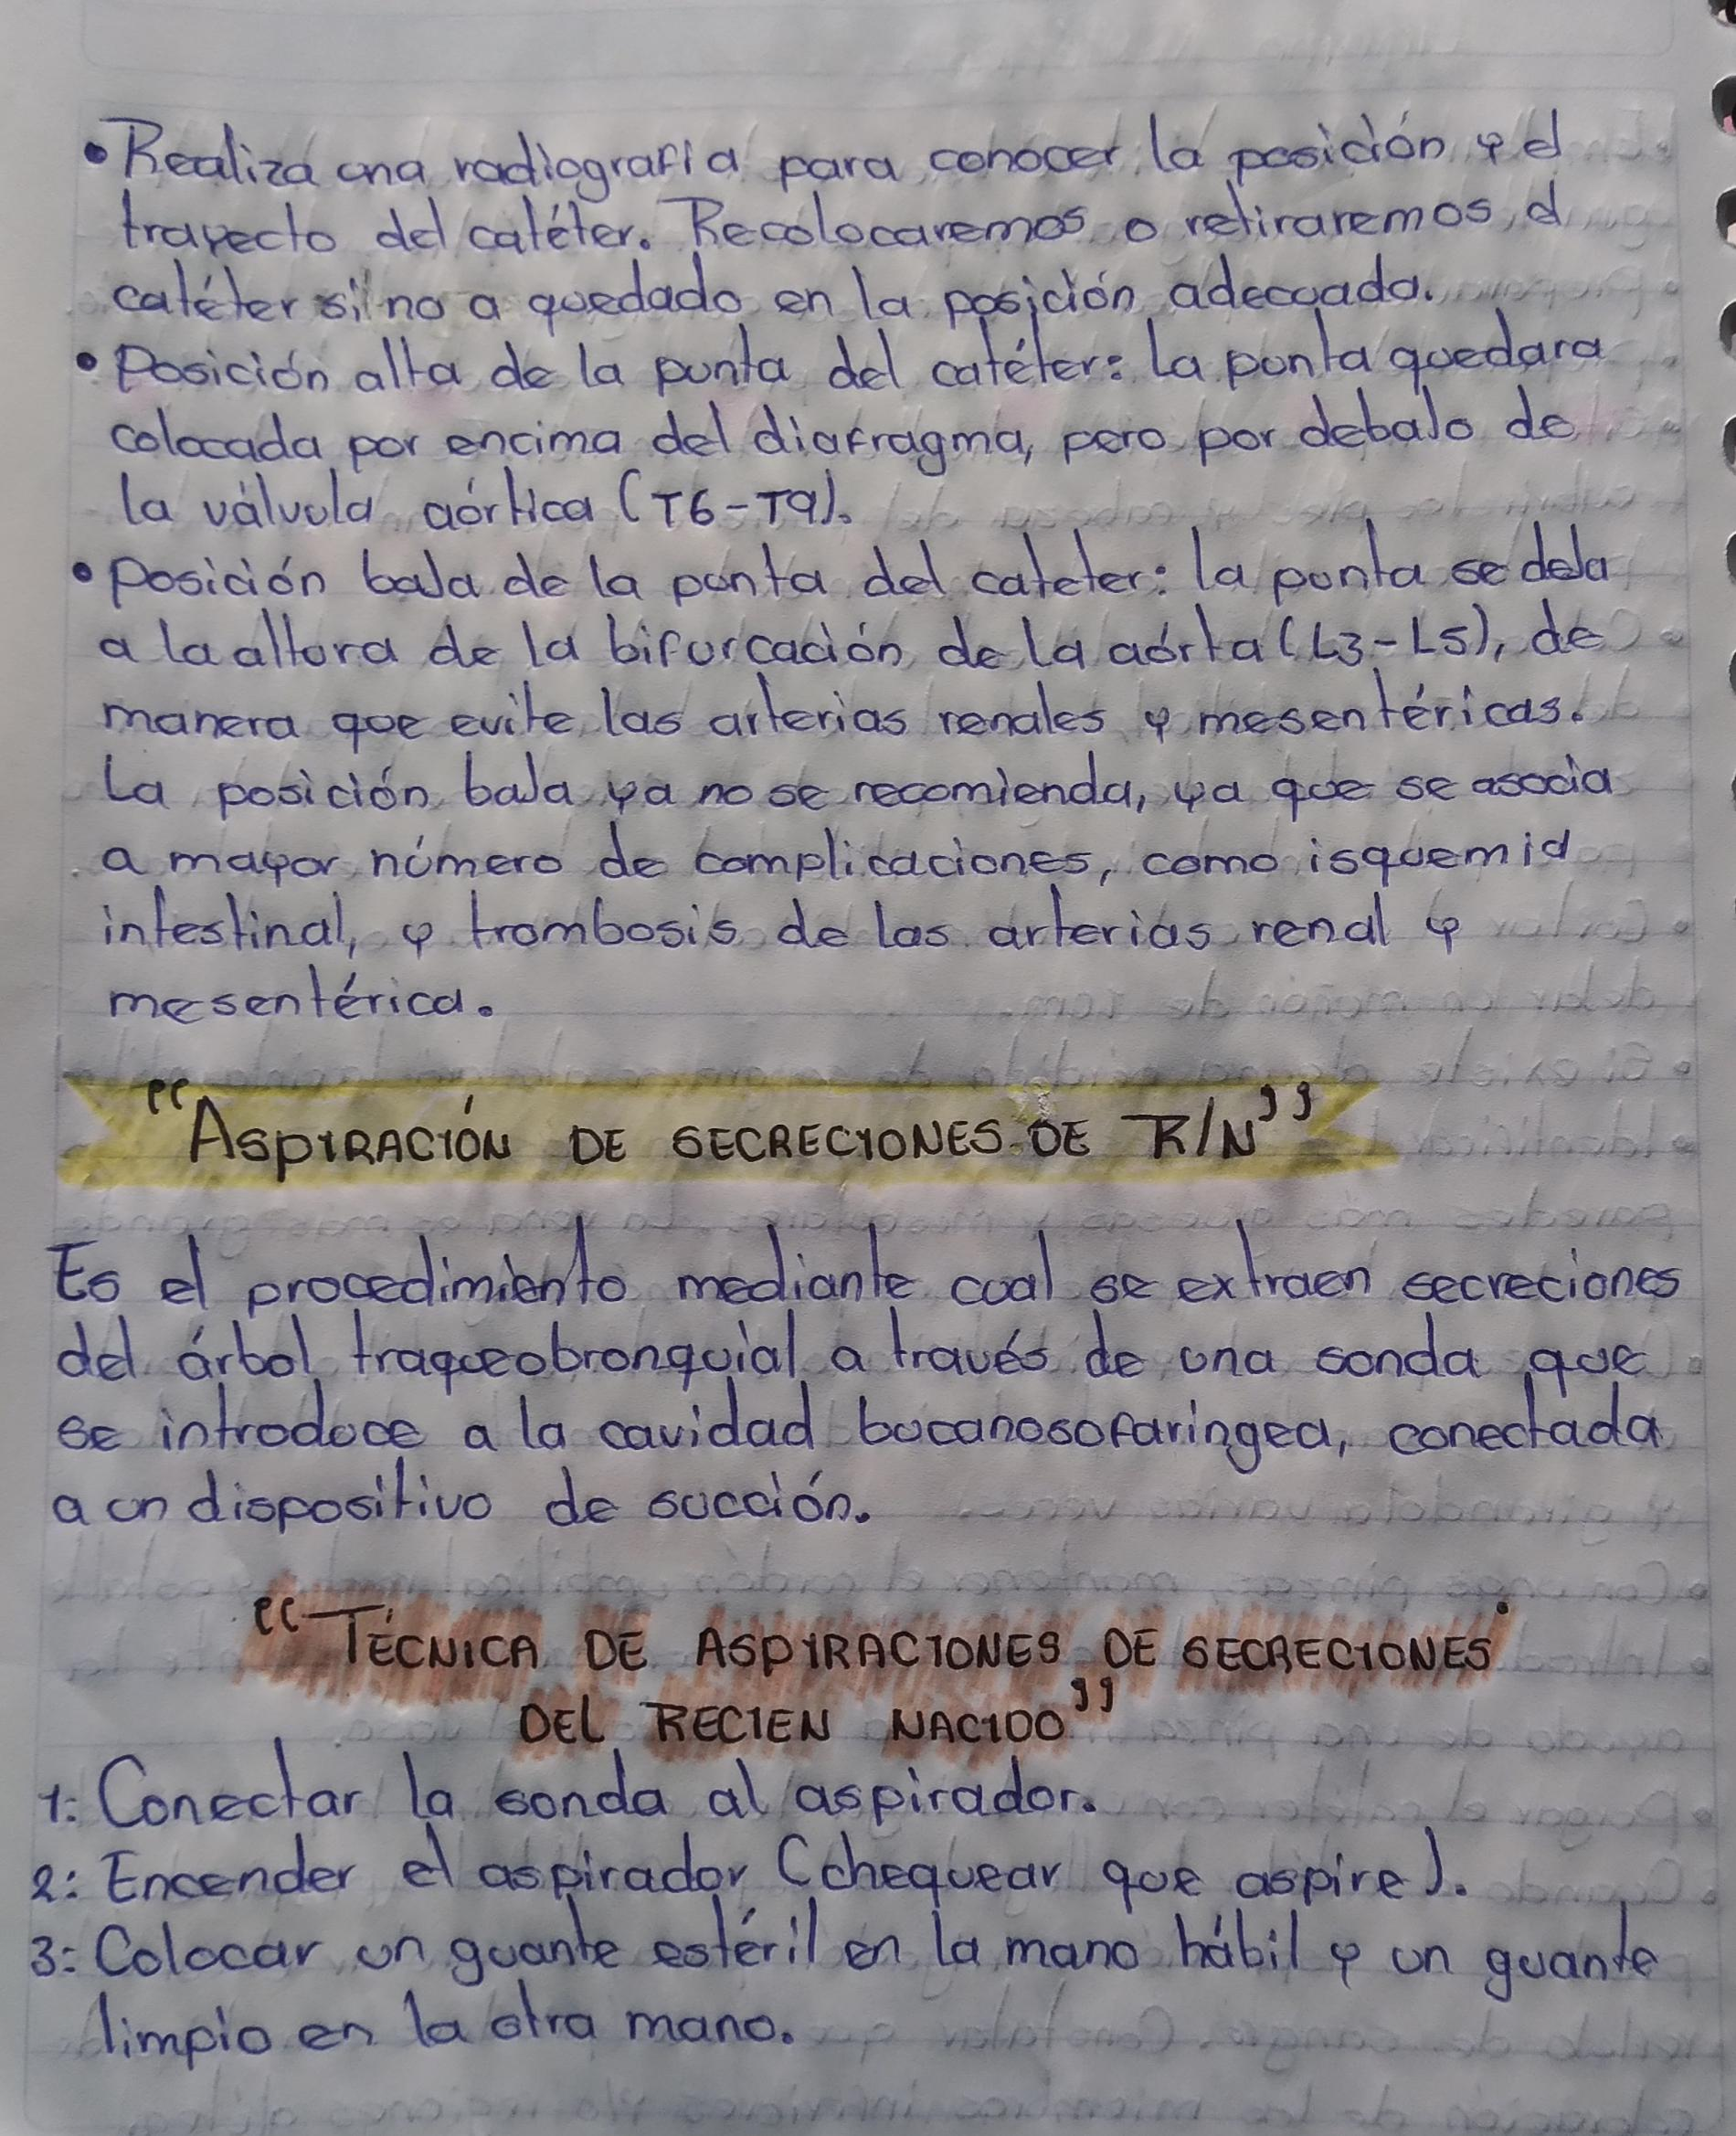 • Realiza una radiografía para conocer la posición y el
trayecto del catéter. Recolocaremos o retiraremos el
catéter si no a quedado en la posición adecuada.
• Posición alta de la punta del catéter: La punta quedara
colocada por encima del diafragma, pero por debajo de
la válvula aórtica (T6-T9).
• Posición baja de la punta del cateter: la punta se deja
a la altura de la bifurcación de la aórta (L3-L5), de
manera que evite las arterias renales y mesentéricas.
La posición baja ya no se recomienda, ya que se asocia
a mayor número de complicaciones, como isquemia
intestinal, y trombosis de las arterias renal y
mesentérica.
"ASPIRACIÓN DE SECRECIONES DE R/N"
Es el procedimiento mediante cual se extraen secreciones
del árbol traqueobronquial a través de una sonda que
se introduce a la cavidad bucanosofaringea, conectada
a un dispositivo de succión.
"TÉCNICA DE ASPIRACIONES DE SECRECIONES
DEL RECIEN NACIDO"
1: Conectar la sonda al aspirador.
2: Encender el aspirador (chequear que aspire).
3: Colocar un guante estéril en la mano hábil y un guante
limpio en la otra mano.